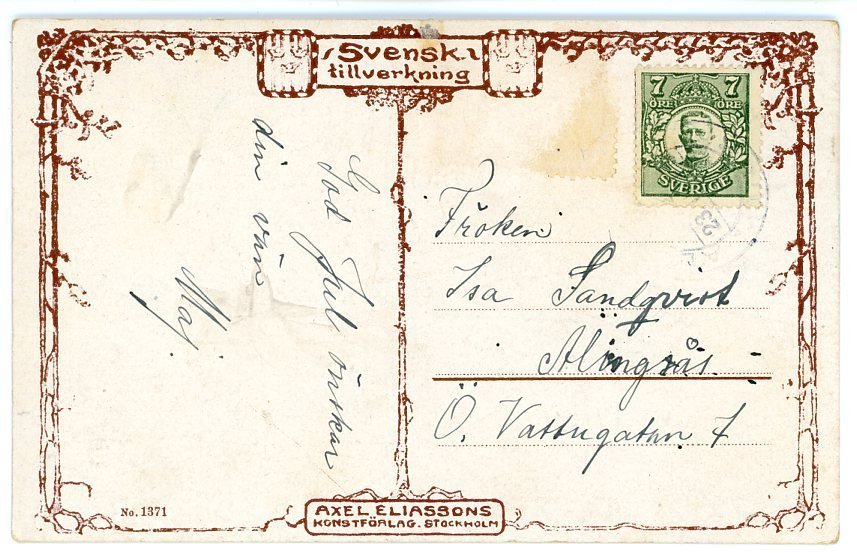 Svensk
tillverkning
7 7
ÖRE ÖRE
SVERIGE
23
God Jul önskar
din vän
Maj.
Fröken
Isa Sandqvist
Alingsås.
Ö. Vattugatan 7
No. 1371
AXEL ELIASSONS
KONSTFÖRLAG. STOCKHOLM